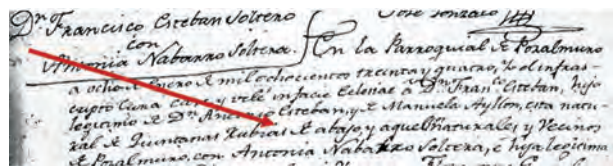 Dn. Francisco Esteban Soltero
con
Antonia Nabarro Soltera.
En la Parroquial de Pozalmuro
a ocho de Enero de mil ochocientos treinta y quatro, Yo el infras-
cripto Cura casé, y velé infacie Eclesiae a Dn. Franco. Esteban, hijo
legitimo de Dn. Antonio Esteban, y de Manuela Ayllon, esta natu-
ral de Quintanas Rubias de abajo, y aquel naturales, y Vecinos
de Pozalmuro, con Antonia Nabarro Soltera, e hija legitima